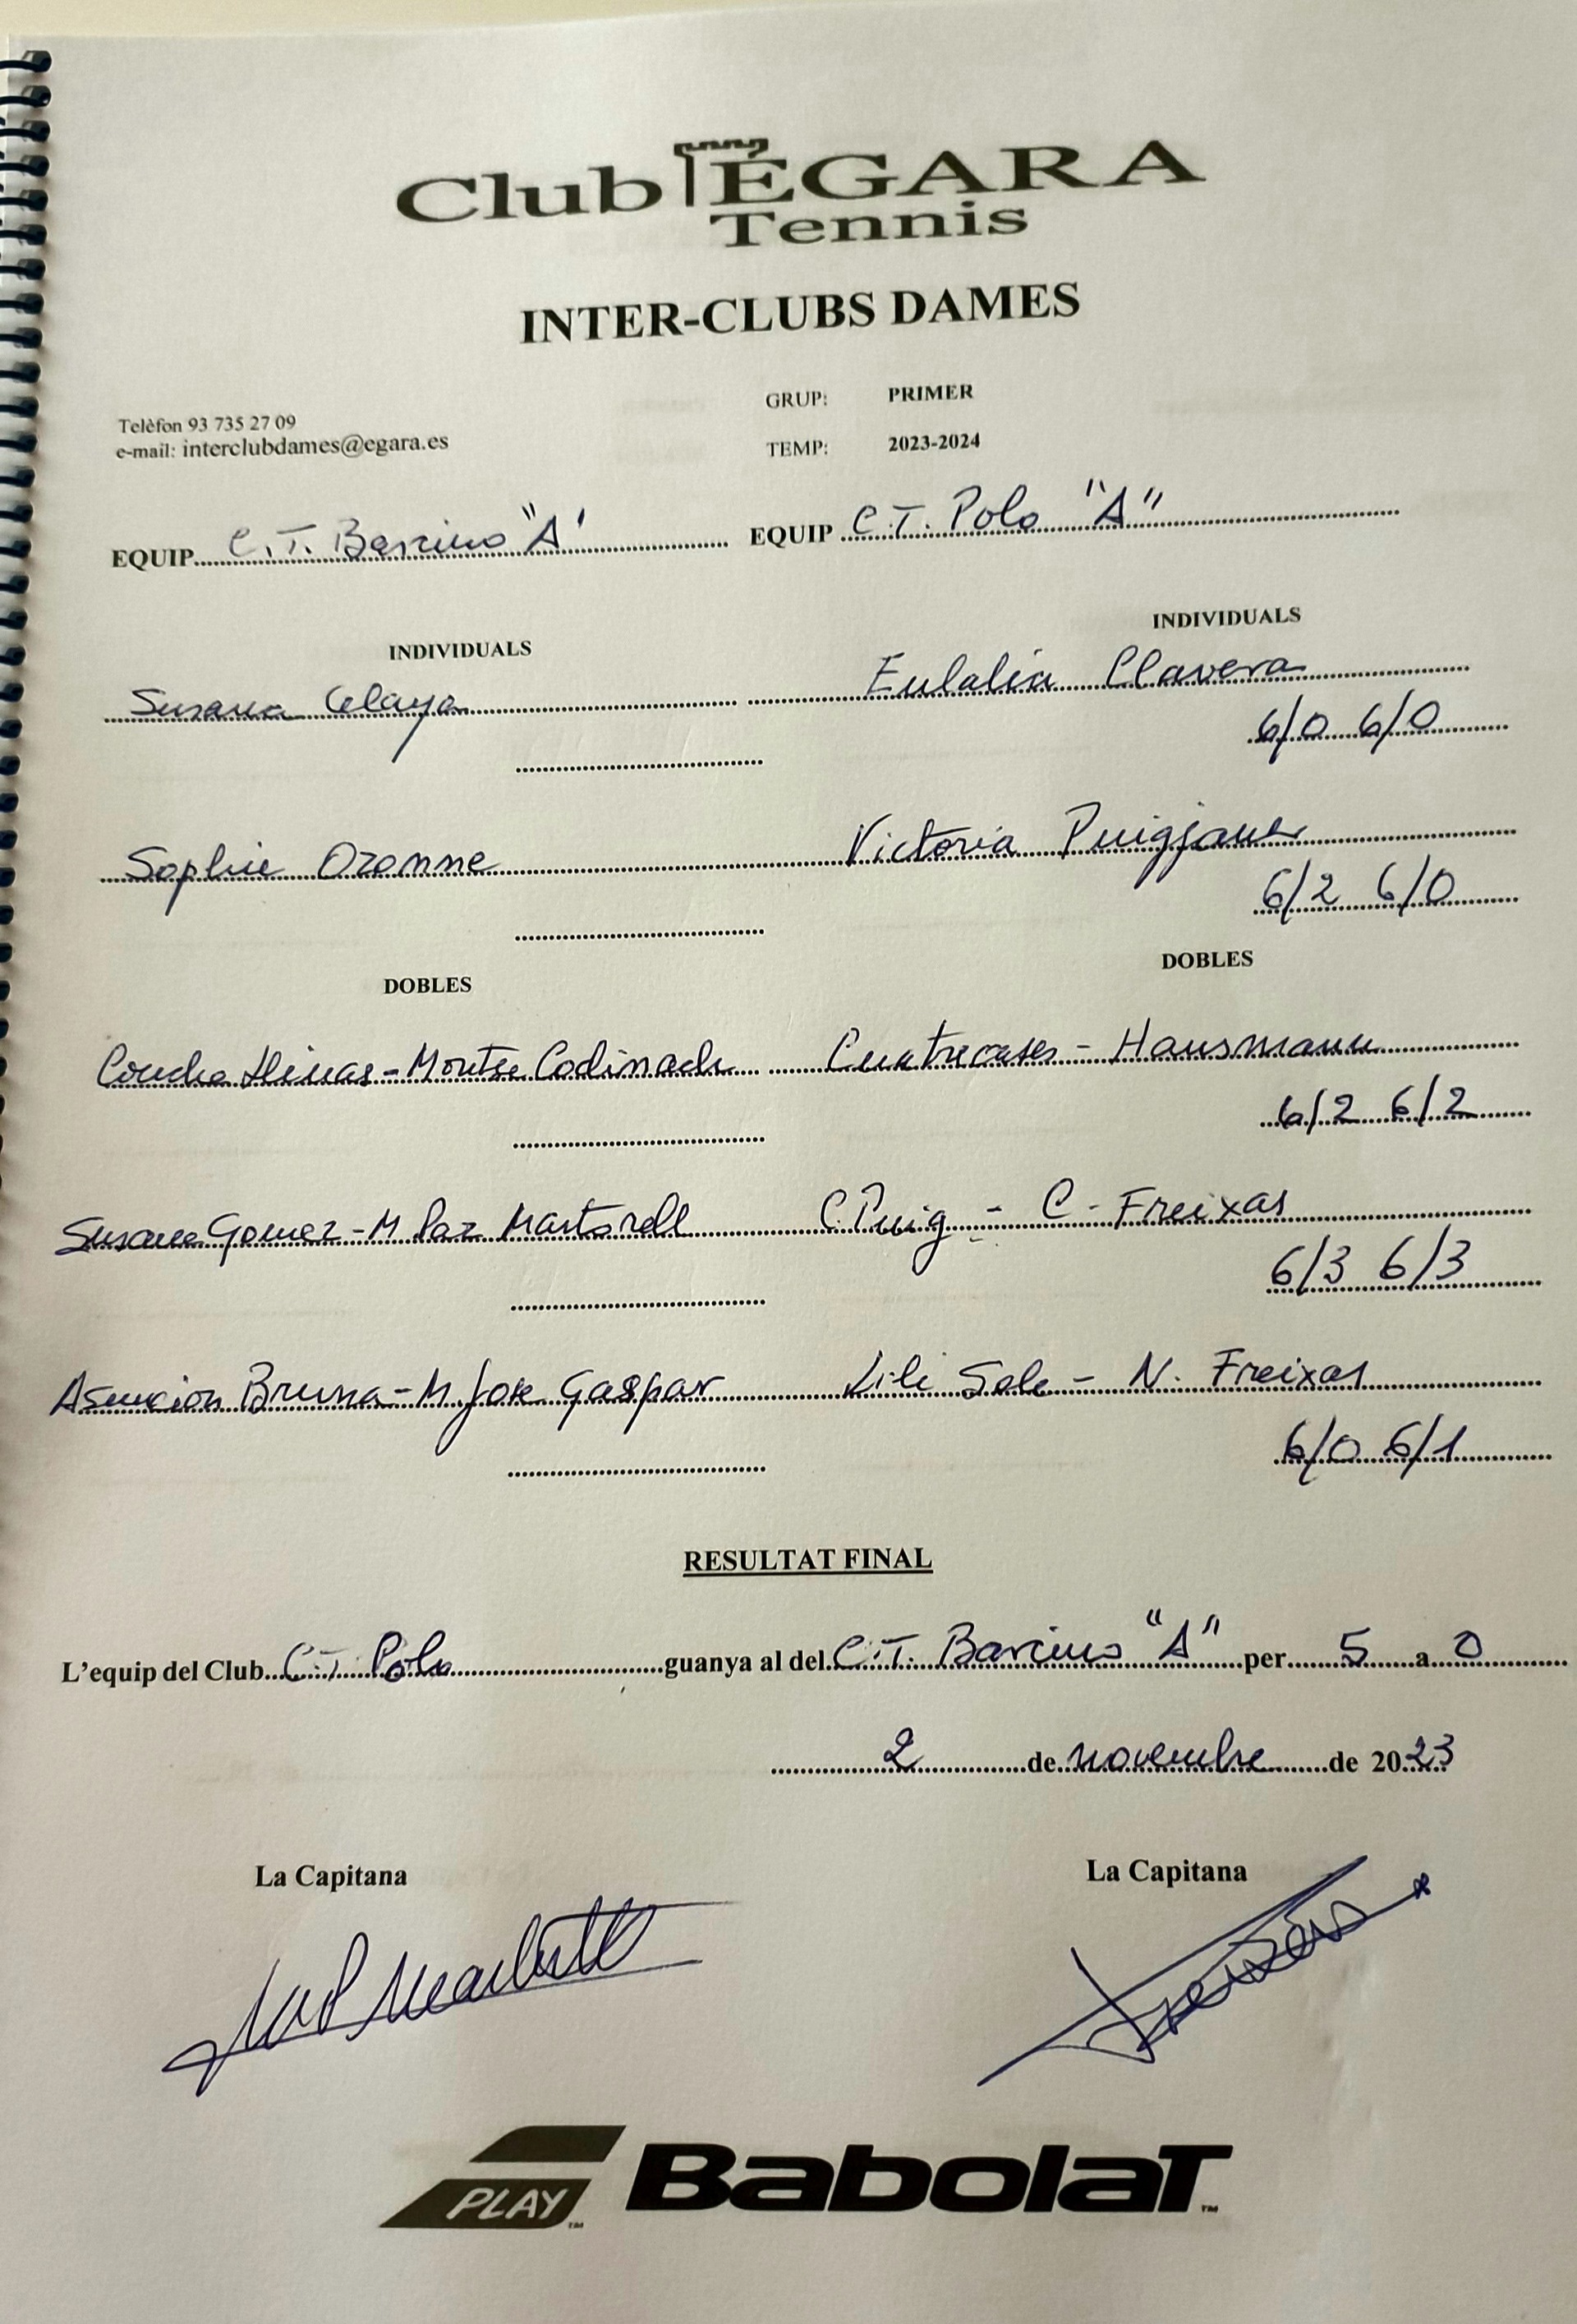 Club ÈGARA
Tennis
INTER-CLUBS DAMES
GRUP: PRIMER
Telèfon 93 735 27 09
e-mail: interclubdames@egara.es
TEMP: 2023-2024
EQUIP C.T. Barcino "A' EQUIP C.T. Polo "A"
INDIVIDUALS INDIVIDUALS
Susana Celaya Eulalia Clavera
6/0 6/0
Sophie Ozanne Victoria Puigjaner
6/2 6/0
DOBLES DOBLES
Concha Llinas - Montse Codinach Cuatrecases - Hausmann
6/2 6/2
Susana Gomez - M Paz Martorell C. Puig - C - Freixas
6/3 6/3
Asuncion Bruna - M. Jose Gaspar Lili Sole - N. Freixas
6/0 6/1
RESULTAT FINAL
L'equip del Club C.T. Polo guanya al del C.T. Barcino "A" per 5 a 0
2 de novembre de 2023
La Capitana La Capitana
PLAY™ BabolaT™